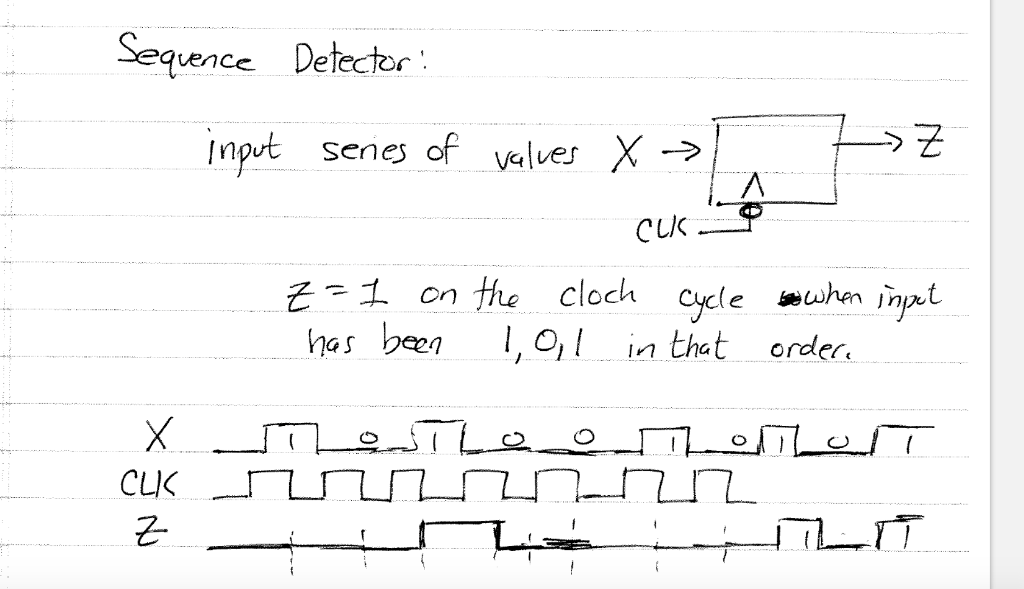 Sequence Detector:
input series of values X → → Z
CLK
Z = 1 on the clock cycle when input
has been 1, 0, 1 in that order.
X 1 0 1 0 0 1 0 1 0 1
CLK
Z 1 1